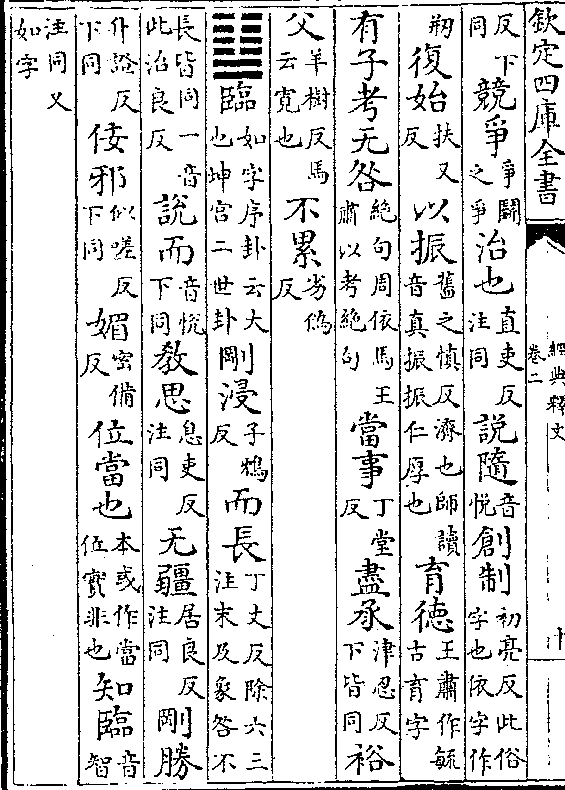 欽定四庫全書
經典釋文
卷二
反下同競爭爭鬬之爭治也直吏反注同說隨音悅創制初亮反此俗字也依字作
刱復始扶又反以振舊之慎反濟也師讀音真振振仁厚也育德王肅作毓古育字
有子考无咎絶句周依馬王肅以考絶句當事丁堂反盡承津忍反下皆同裕
父羊樹反馬云寛也不累劣偽反
䷒臨如字序卦云大也坤宫二世卦剛浸子鴆反而長丁丈反除六三注末及象咎不
長皆同一音此治良反說而音悅下同教思息吏反注同无疆居良反注同剛勝
升證反下同佞邪似嗟反下同媚密備反位當也本或作當位實非也知臨音智
注同又如字